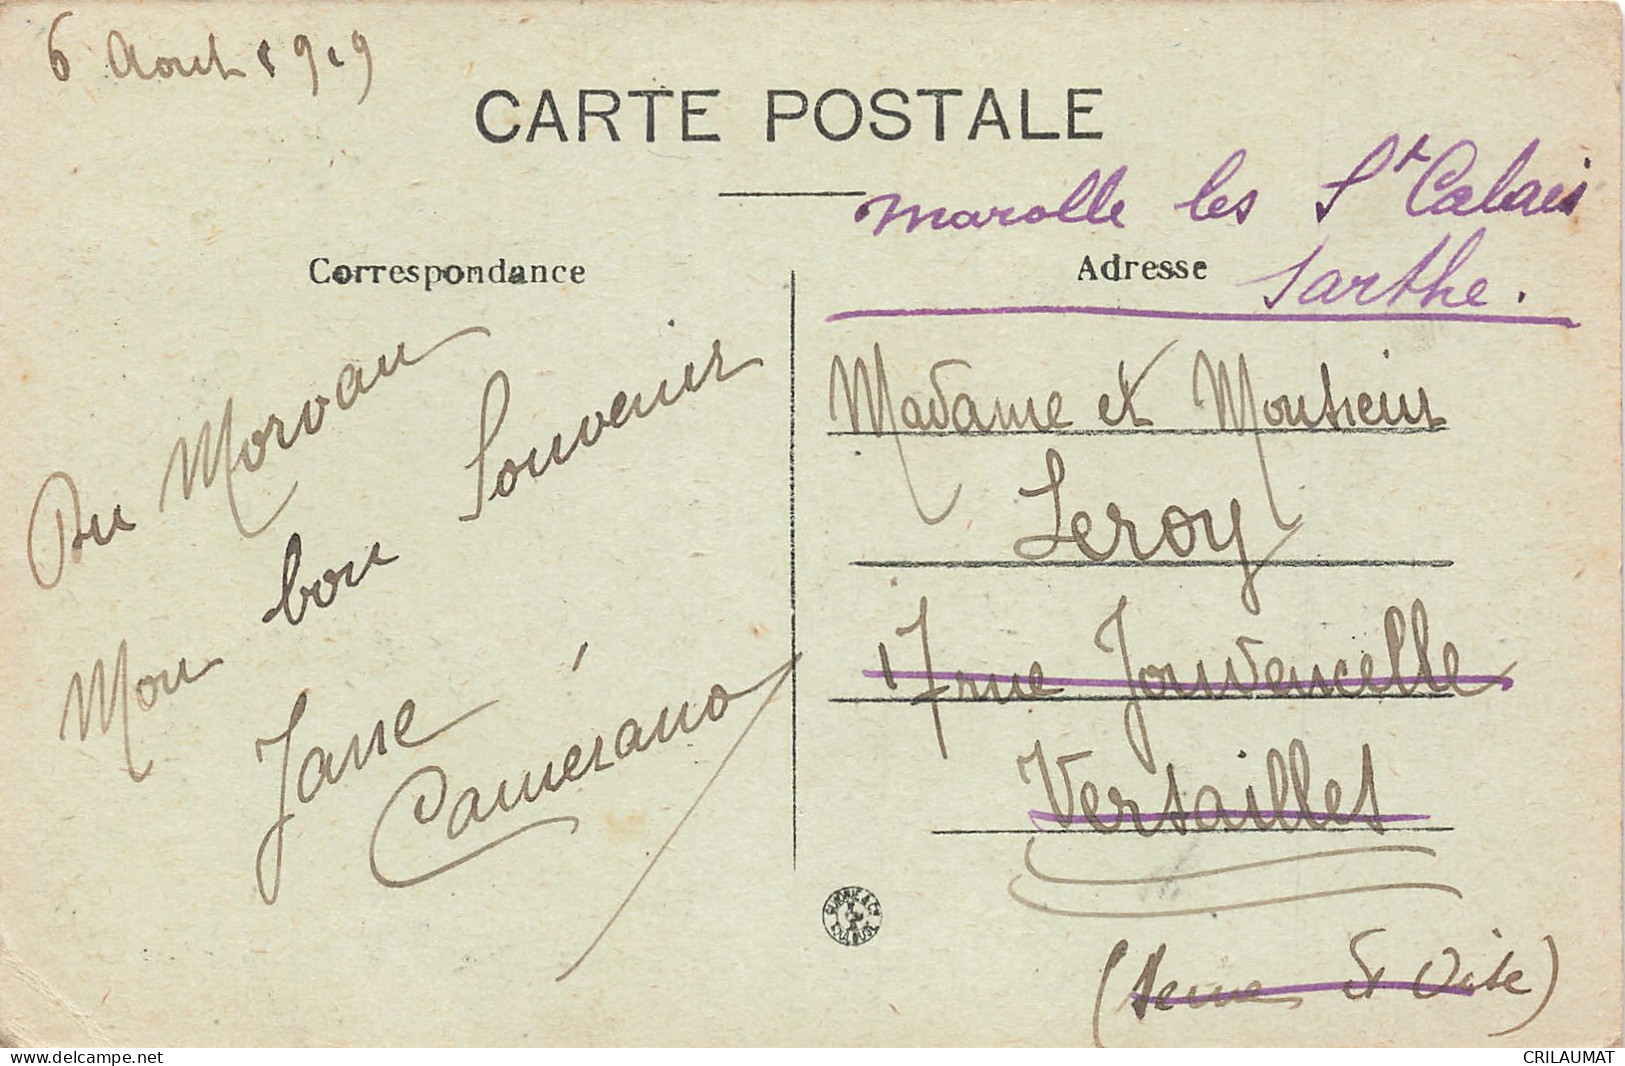 6 Aout 1919
CARTE POSTALE
marolle les St Calais
Sarthe.
Correspondance
Adresse
Du Morvan
Mon bon Souvenir
Jane
Camérano
Madame et Monsieur
Leroy
17 rue Jouvencelle
Versailles
(Seine & Oise)
www.delcampe.net
CRILAUMAT